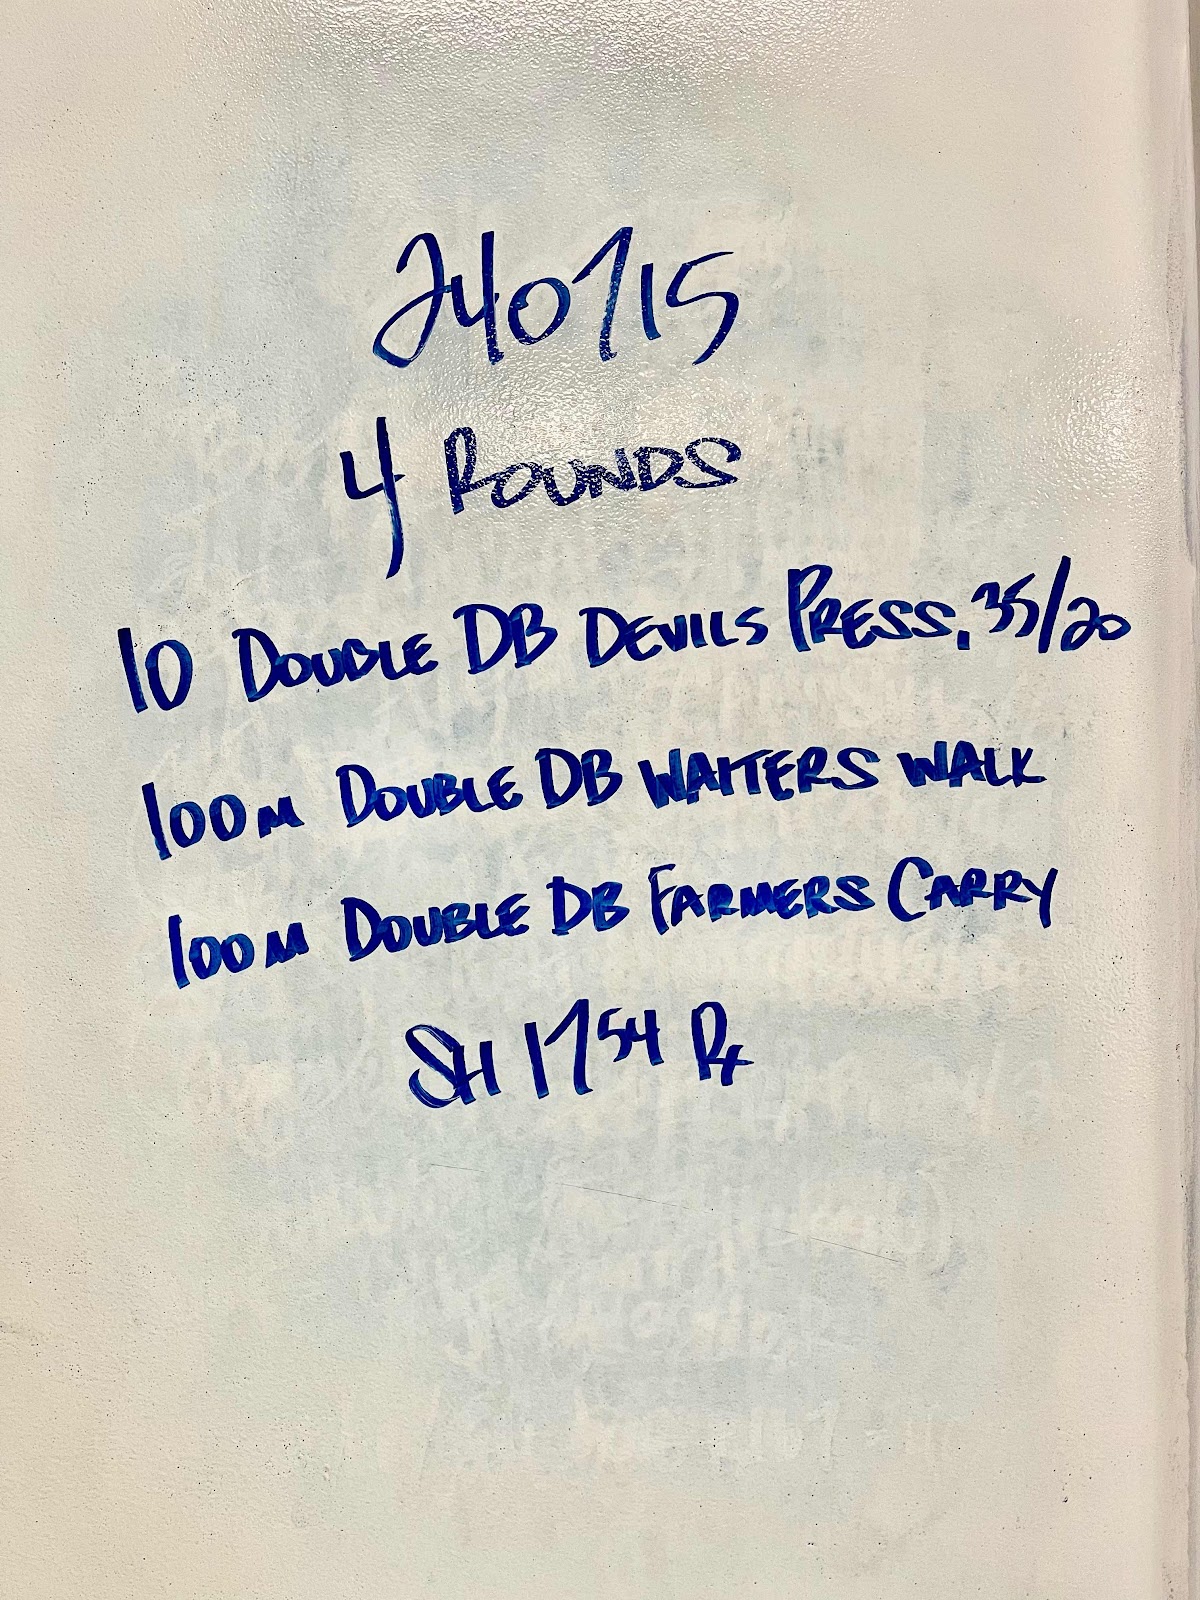 240715
4 ROUNDS
10 DOUBLE DB DEVILS PRESS, 35/20
100M DOUBLE DB WAITERS WALK
100M DOUBLE DB FARMERS CARRY
SH 1754 Rx